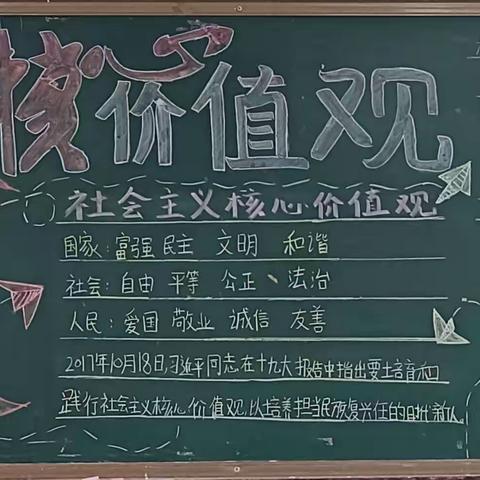 核心价值观
社会主义核心价值观
国家：富强 民主 文明 和谐
社会：自由 平等 公正、法治
人民：爱国 敬业 诚信 友善
2017年10月18日，习近平同志在十九大报告中指出要培育和
践行社会主义核心价值观，以培养担当民族复兴大任的时代新人。